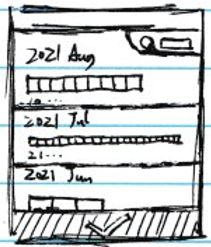 2021 Aug
2021 Jul
21...
2021 Jun